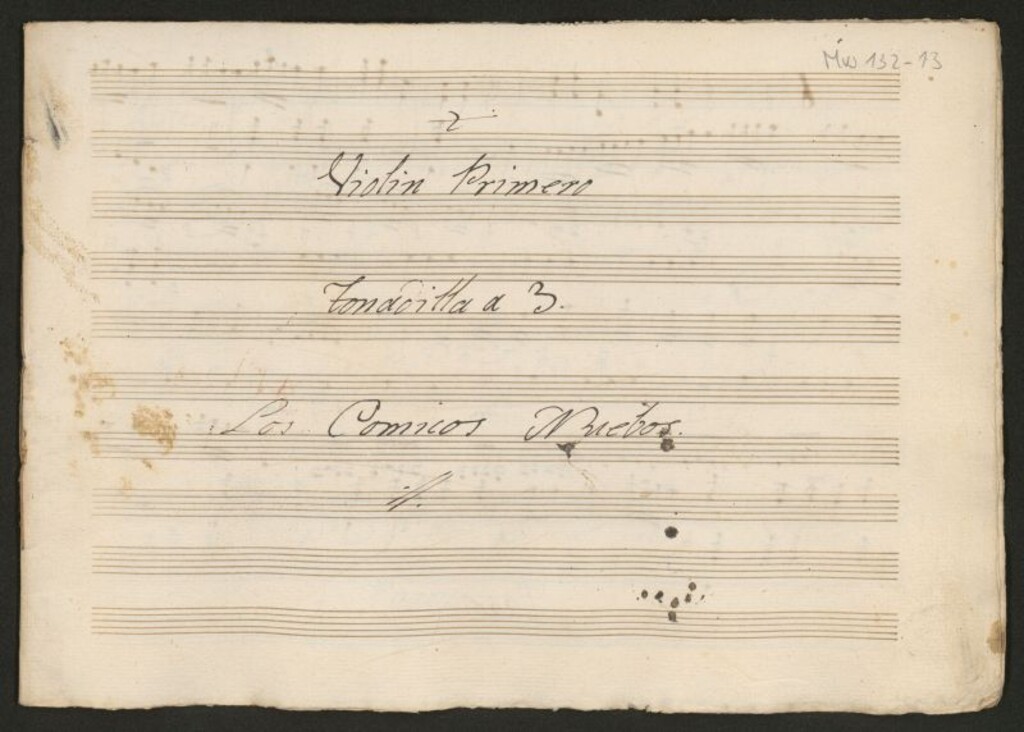 Mw 132-13
2
Violin Primero
Tonadilla a 3.
Los Comicos Nuebos.